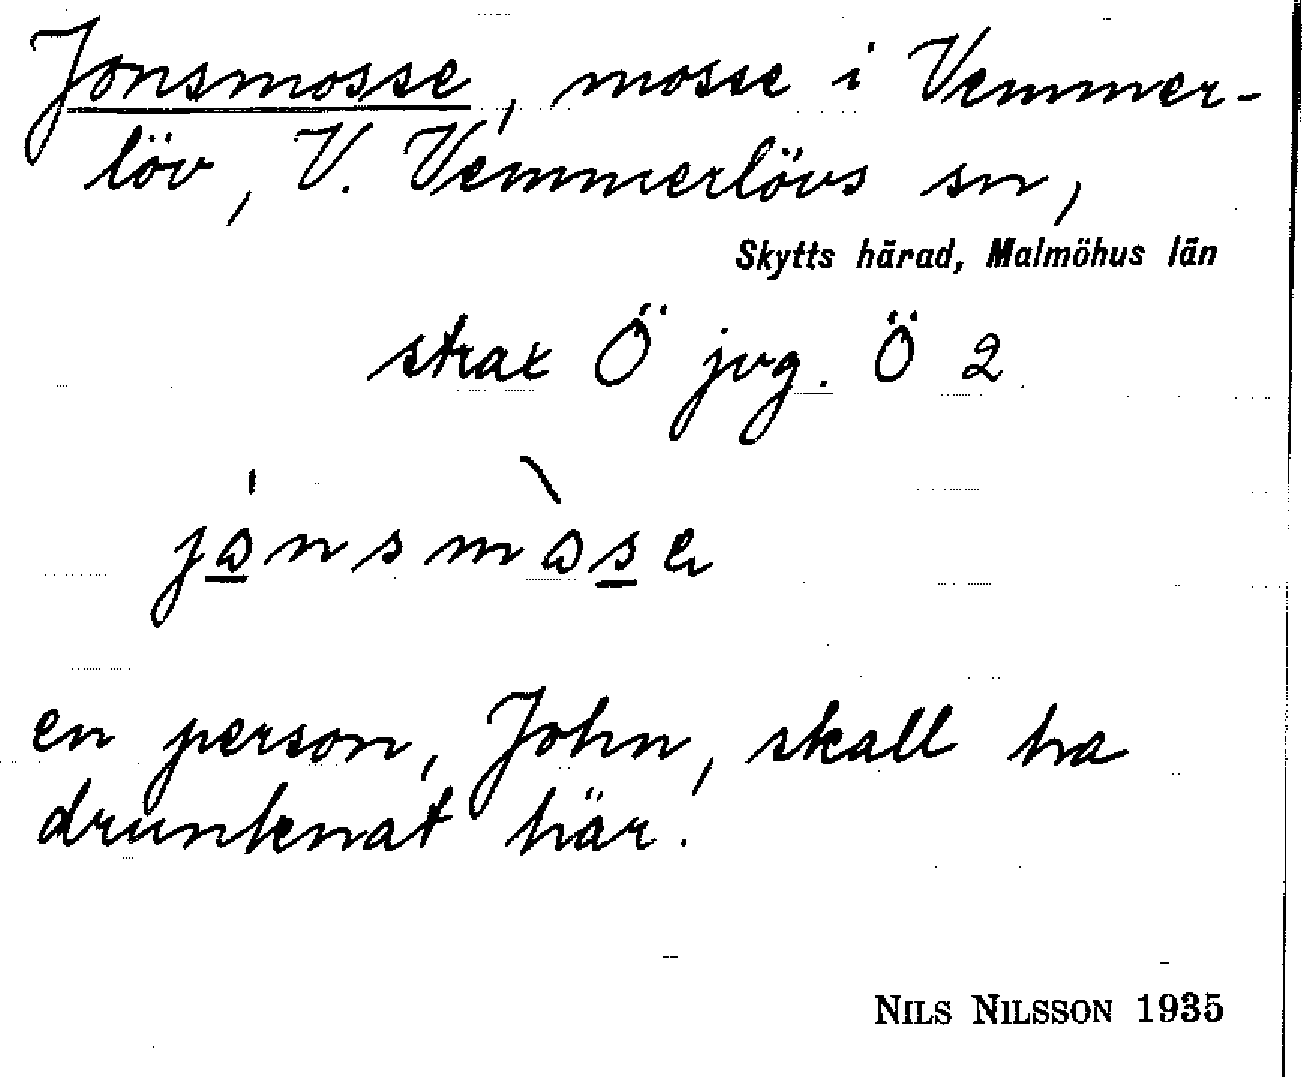 Jonsmosse, mosse i Vemmer-
löv, V. Vemmerlövs sn,
Skytts härad, Malmöhus län
strax Ö jvg. Ö 2
jånsmåse
en person, John, skall ha
drunknat här.
NILS NILSSON 1935